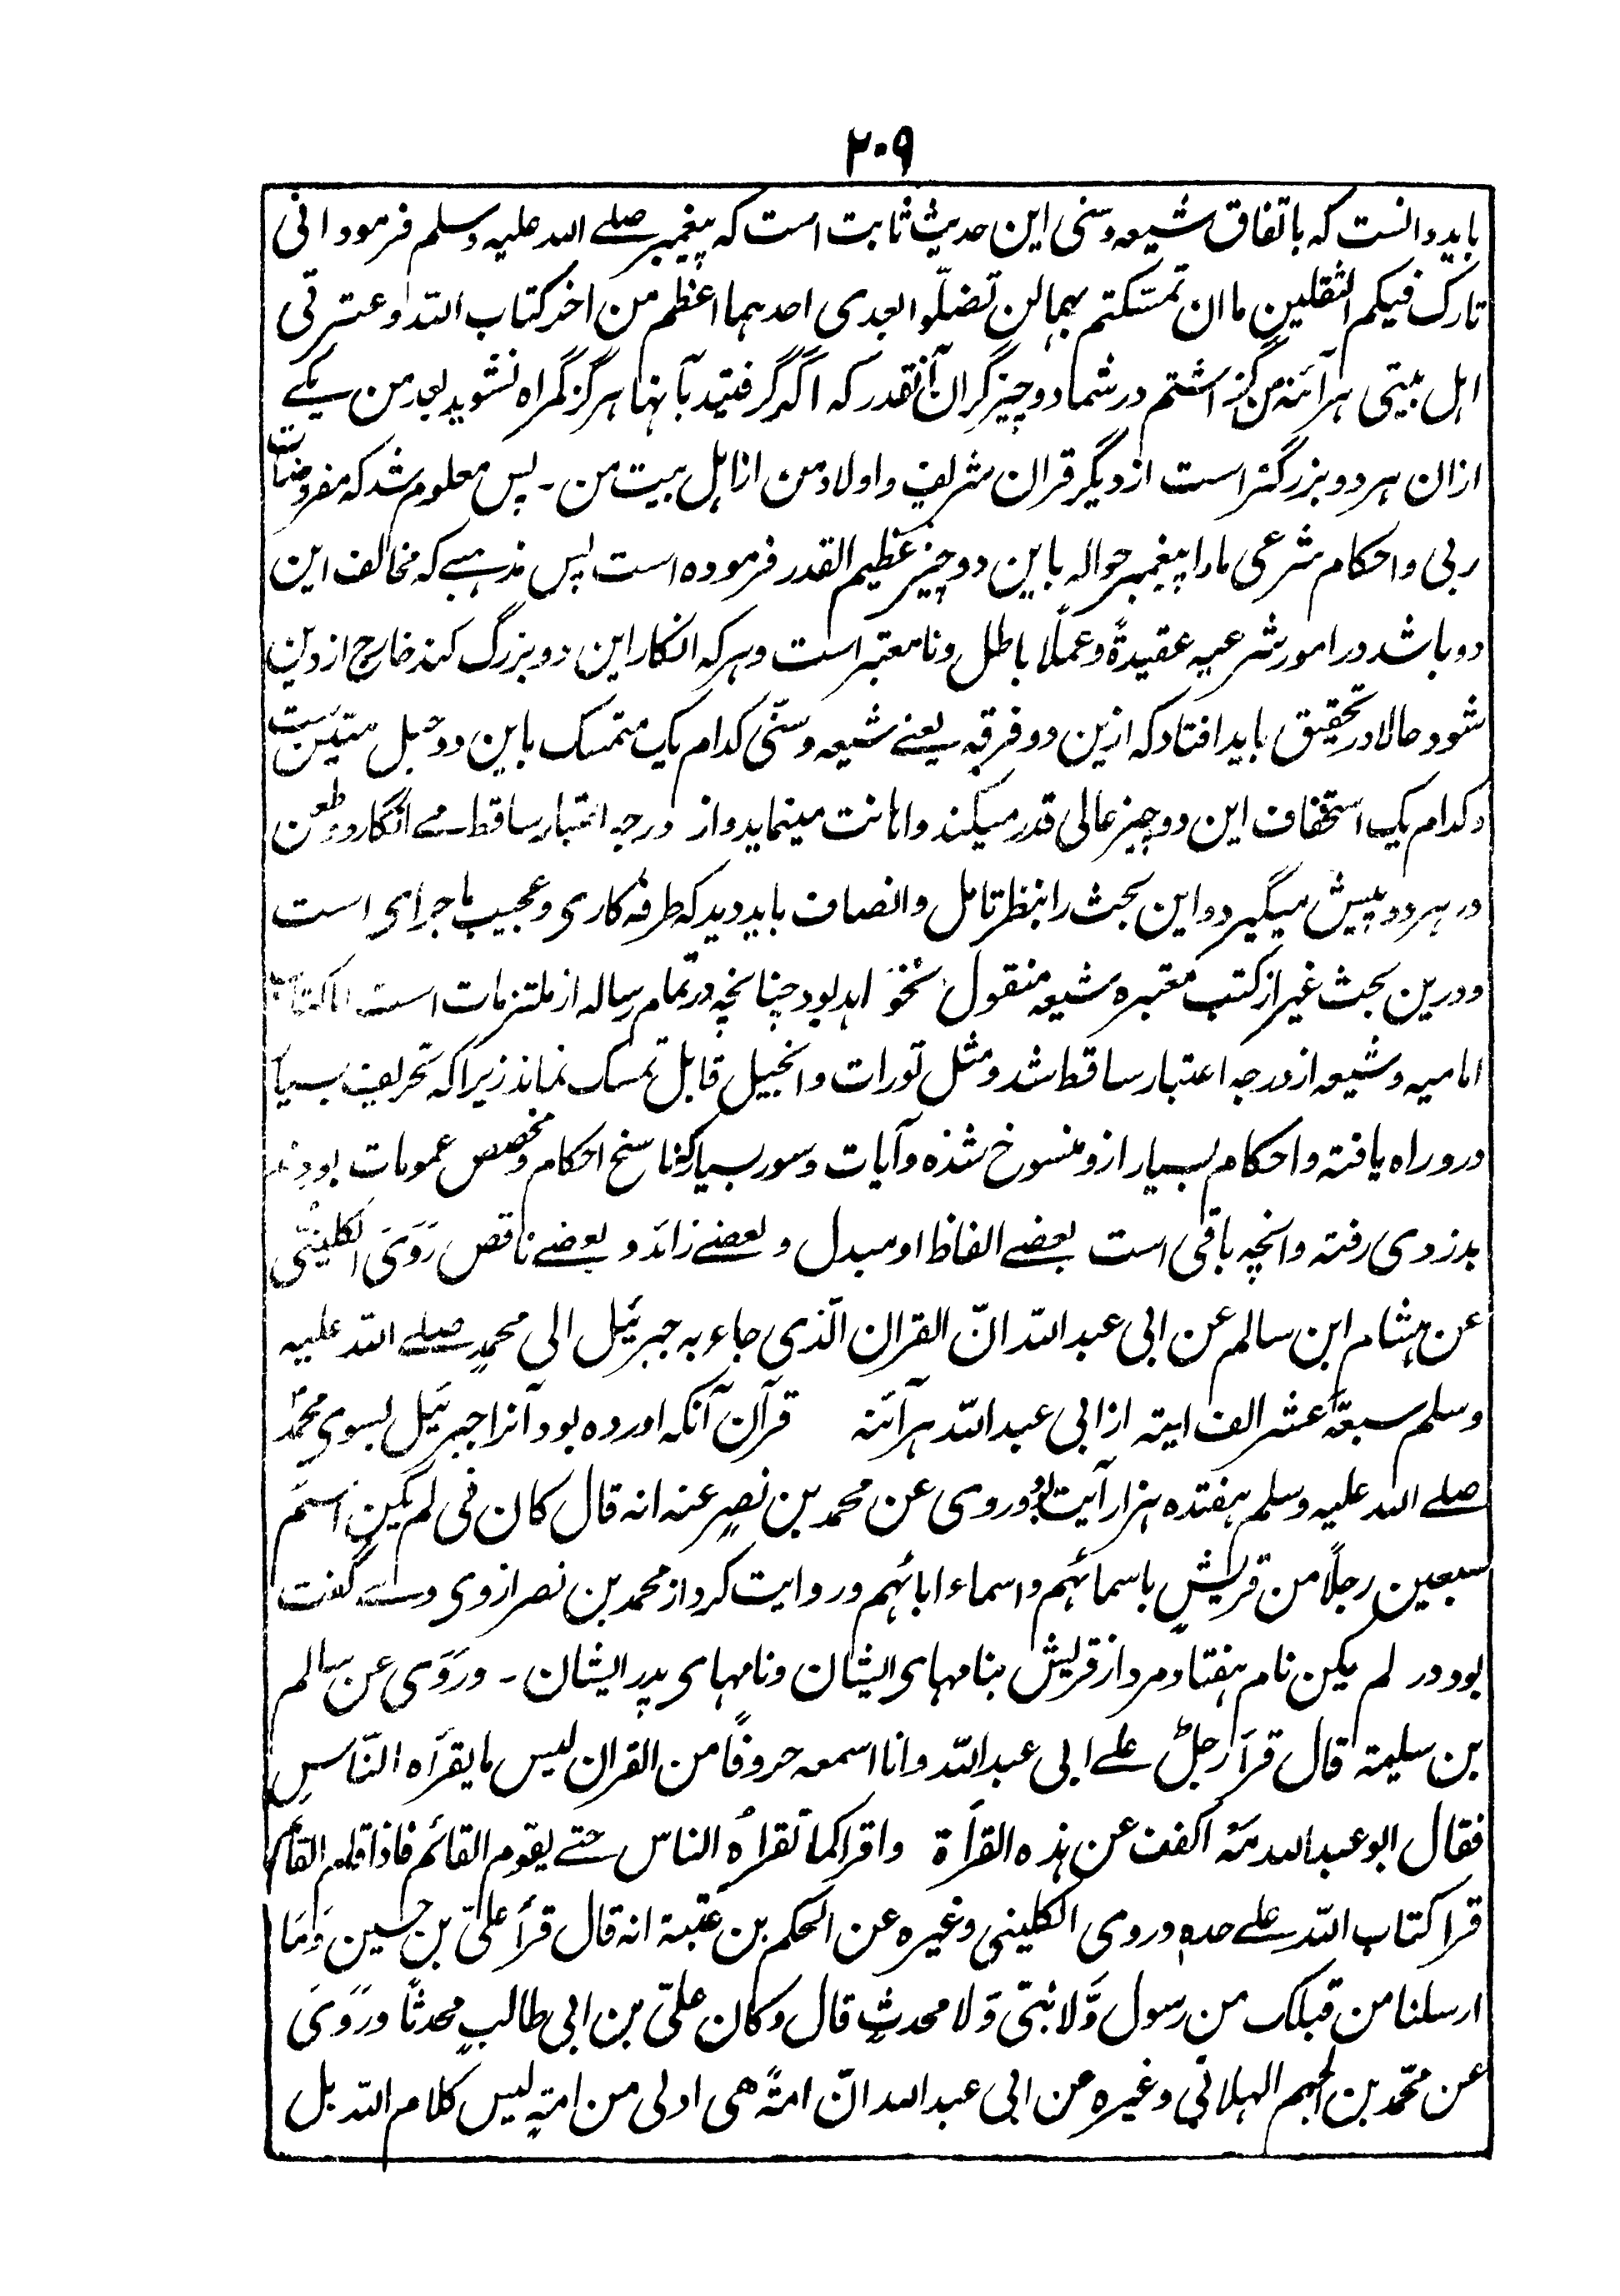 ۲۰۹
باید دانست که باتفاق شیعه و سنی این حدیث ثابت است که پیغمبر صلے الله علیه وسلم فرمود انی
تارک فیکم الثقلین ما ان تمسکتم بهما لن تضلّوا بعدی احدهما اعظم من اخر کتاب الله وعترتی
اهل بیتی هرآئنه من گزاشتم در شما دو چیز گران آنقدر که اگر گرفتید بآنها هرگز گمراه نشوید بعد من یکے
ازان هر دو بزرگتر است از دیگر قران شریف و اولاد من از اهل بیت من ۔ پس معلوم شد که مفروضات
ربی و احکام شرعی ما را پیغمبر حواله باین دو چیز عظیم القدر فرموده است پس مذهبے که مخالف این
دو باشد در امور شرعیه عقیدةً و عملاً باطل و نامعتبر است و هر که انکار این دو بزرگ کند خارج از دین
شود حالا در تحقیق باید افتاد که ازین دو فرقه یعنے شیعه و سنّی کدام یک متمسک باین دو حبل متین ست
و کدام یک استخفاف این دو چیز عالی قدر میکند و اهانت مینماید و از درجه اعتبار ساقط مے انگارد و طعن
در هر دو پیش میگیرد و این بحث را بنظر تامل و انصاف باید دید که طرفه کاری و عجیب ماجرای است
و درین بحث غیر از کتب معتبره شیعه منقول نخواهد بود چنانچه در تمام رساله از ملتزمات است اما کتاب
امامیه و شیعه از درجه اعتبار ساقط شد و مثل تورات و انجیل قابل تمسک نماند زیرا که تحریف بسیار
درو راه یافته و احکام بسیار ازو منسوخ شده و آیات و سور بسیار که ناسخ احکام و مخصص عمومات بودند
بدزدی رفته و انچه باقی است بعضے الفاظ او مبدل و بعضے زائد و بعضے ناقص رَوَیَ الکلینیّ
عن هشام ابن سالم عن ابی عبد الله انّ القران الّذی جاء به جبرئیل الی محمدٍ صلے الله علیه
وسلم سبعةَ عشر الف ایته از ابی عبد الله هرآئنه قرآن آنکه اورده بود آنرا جبرئیل بسوی محمدؐ
صلے الله علیه وسلم هفتده هزار آیت بود و روی عن محمد بن نصرٍ عنه انه قال کان فی لم یکن اسم
سبعین رجلاً من قریشٍ باسمائهم و اسماء ابائهم و روایت کرد از محمد بن نصر از وی وے گفت
بود در لم یکن نام هفتاد مرد از قریش بنامهای ایشان و نامهای پدر ایشان ۔ و رَوَی عن سالم
بن سلیمة قال قرأ رجلٌ علے ابی عبد الله و انا اسمعه حروفًا من القران لیس ما یقرأه النّاسِ
فقال ابو عبد الله مَهْ اکفف عن هذه القرأة و اقرا کما تقراه الناس حتے یقوم القائم فاذا قام القائم
قرا کتاب الله علے حده و روی الکلینی و غیره عن الحکم بن عتبة انه قال قرأ علیّ بن حسین وَمَا
ارسلنا من قبلک من رسول وّلا نبّی وَلا محدثٍ قال و کان علیّ بن ابی طالبٍ محدثًا و رَوَیَ
عن محّمد بن الجهم الهلالی و غیره عن ابی عبد الله انّ امةً هی اولی من امةٍ لیس کلام الله بل